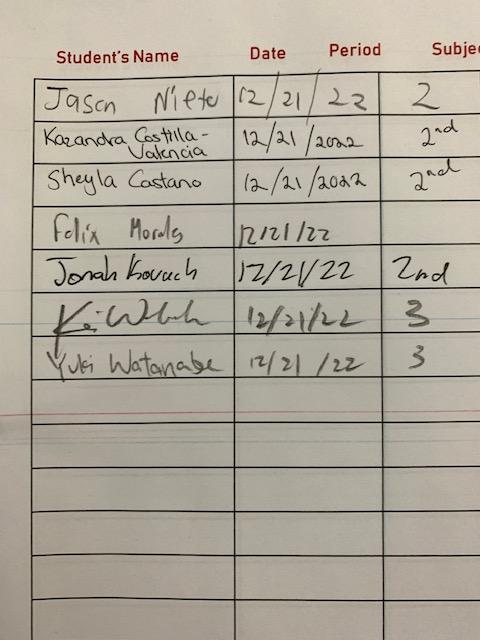 Student's Name Date Period Subje
Jason Nieto 12/21/22 2
Kazandra Costilla-Valencia 12/21/2022 2nd
Sheyla Castano 12/21/2022 2nd
Felix Morales 12/21/22
Jonah Kovach 12/21/22 2nd
12/21/22 3
Yuki Watanabe 12/21/22 3